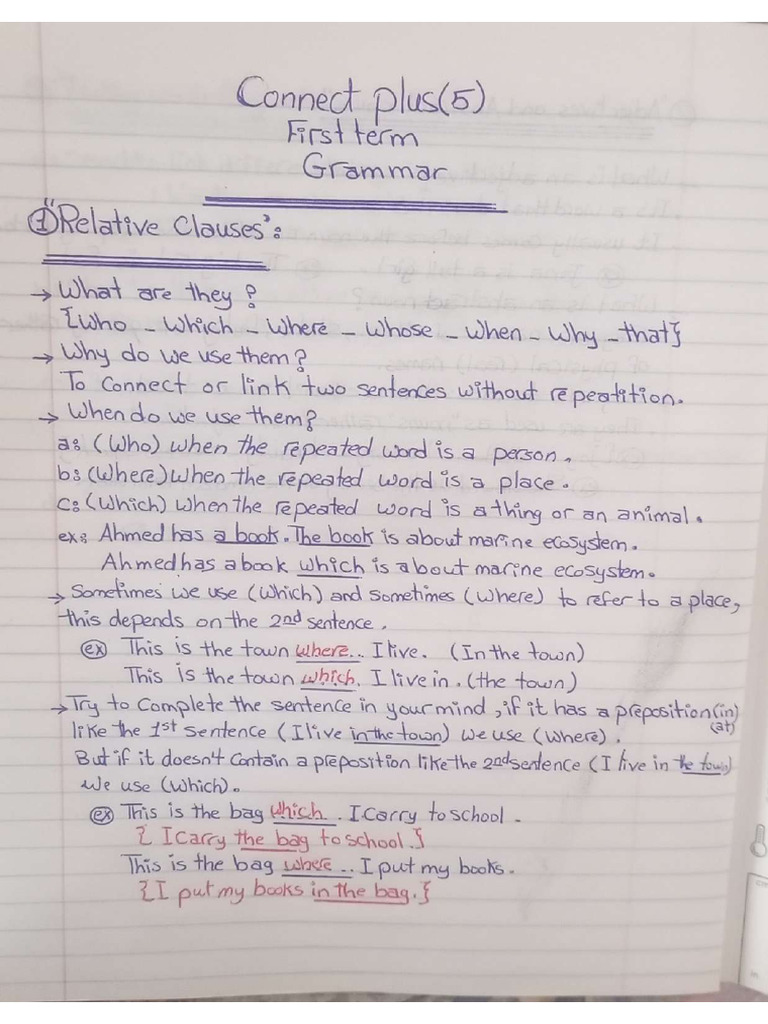 Connect plus(5)
First term
Grammar
①"Relative Clauses":
→ What are they?
{Who - Which - Where - Whose - When - Why - that}
→ Why do we use them?
To connect or link two sentences without repeatition.
→ When do we use them?
a: (Who) when the repeated word is a person.
b: (Where) when the repeated word is a place.
c: (Which) when the repeated word is a thing or an animal.
ex: Ahmed has a book. The book is about marine ecosystem.
Ahmed has a book which is about marine ecosystem.
→ Sometimes we use (which) and sometimes (where) to refer to a place,
this depends on the 2nd sentence.
ex This is the town where.. I live. (In the town)
This is the town which. I live in. (the town)
→ Try to complete the sentence in your mind, if it has a preposition (in)
(at)
like the 1st sentence (I live in the town) we use (where).
But if it doesn't contain a preposition like the 2nd sentence (I live in the town)
we use (which).
ex This is the bag which. I carry to school.
{I carry the bag to school.}
This is the bag where .. I put my books.
{I put my books in the bag.}